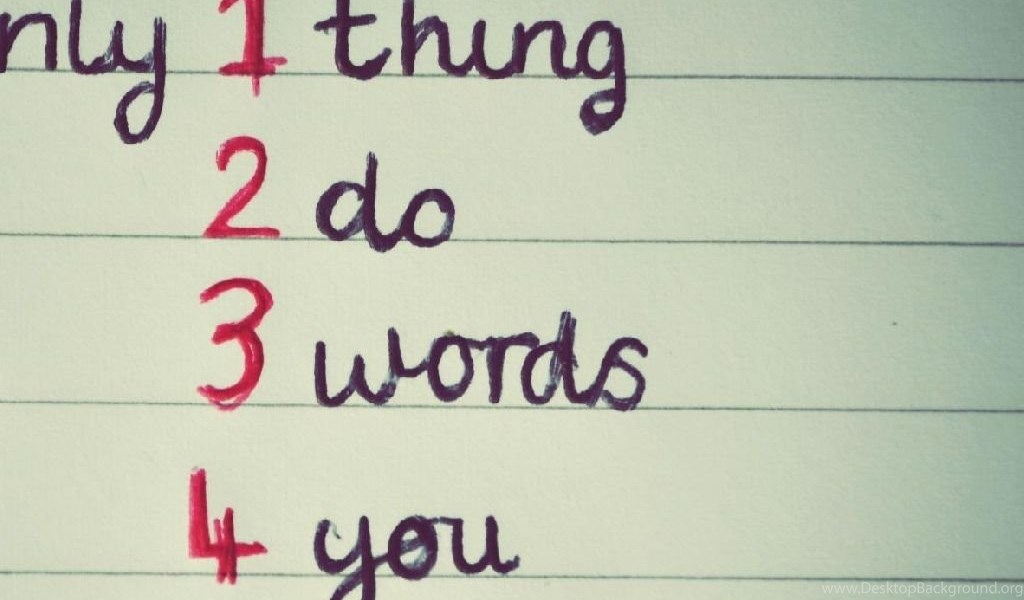 nly 1 thing
2 do
3 words
4 you
www.DesktopBackground.org